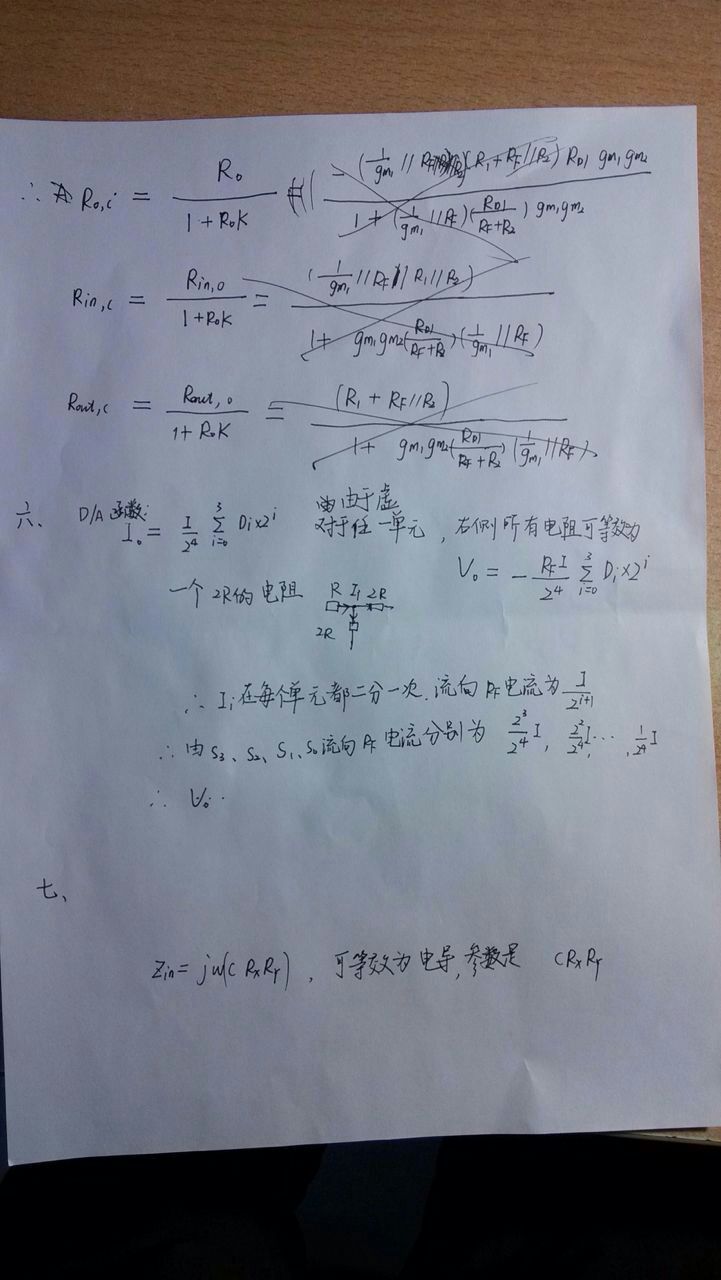 ∴ R₀,c = R₀ / (1 + R₀K) = −(1/gm₁ // RF // R₂)(R₁ + RF // R₂) RD1 gm₁ gm₂ / (1 + (1/gm₁ // RF)(RD1/(RF+R₂)) gm₁gm₂)
Rin,c = Rin,o / (1 + R₀K) = (1/gm₁ // RF // R₁ // R₂) / (1 + gm₁gm₂(RD1/(RF+R₂))(1/gm₁ // RF))
Rout,c = Rout,o / (1 + R₀K) = (R₁ + RF // R₂) / (1 + gm₁gm₂(RD1/(RF+R₂))(1/gm₁ // RF))
六、 D/A 函数: 由由于虚
I₀ = I/2⁴ ∑_{i=0}^{3} Di×2ⁱ 对于任一单元，右侧所有电阻可等效为
V₀ = − RF I/2⁴ ∑_{i=0}^{3} Di×2ⁱ
一个2R的电阻 R I₁ 2R
2R
∴ Ii在每个单元都二分一次.流向RF电流为 I/2^{i+1}
∴ 由S₃、S₂、S₁、S₀流向RF电流分别为 2³/2⁴ I, 2²/2⁴ I, … , 1/2⁴ I
∴ V₀…
七、
Zin = jw(C RxRy)，可等效为电导,参数是 CRxRy